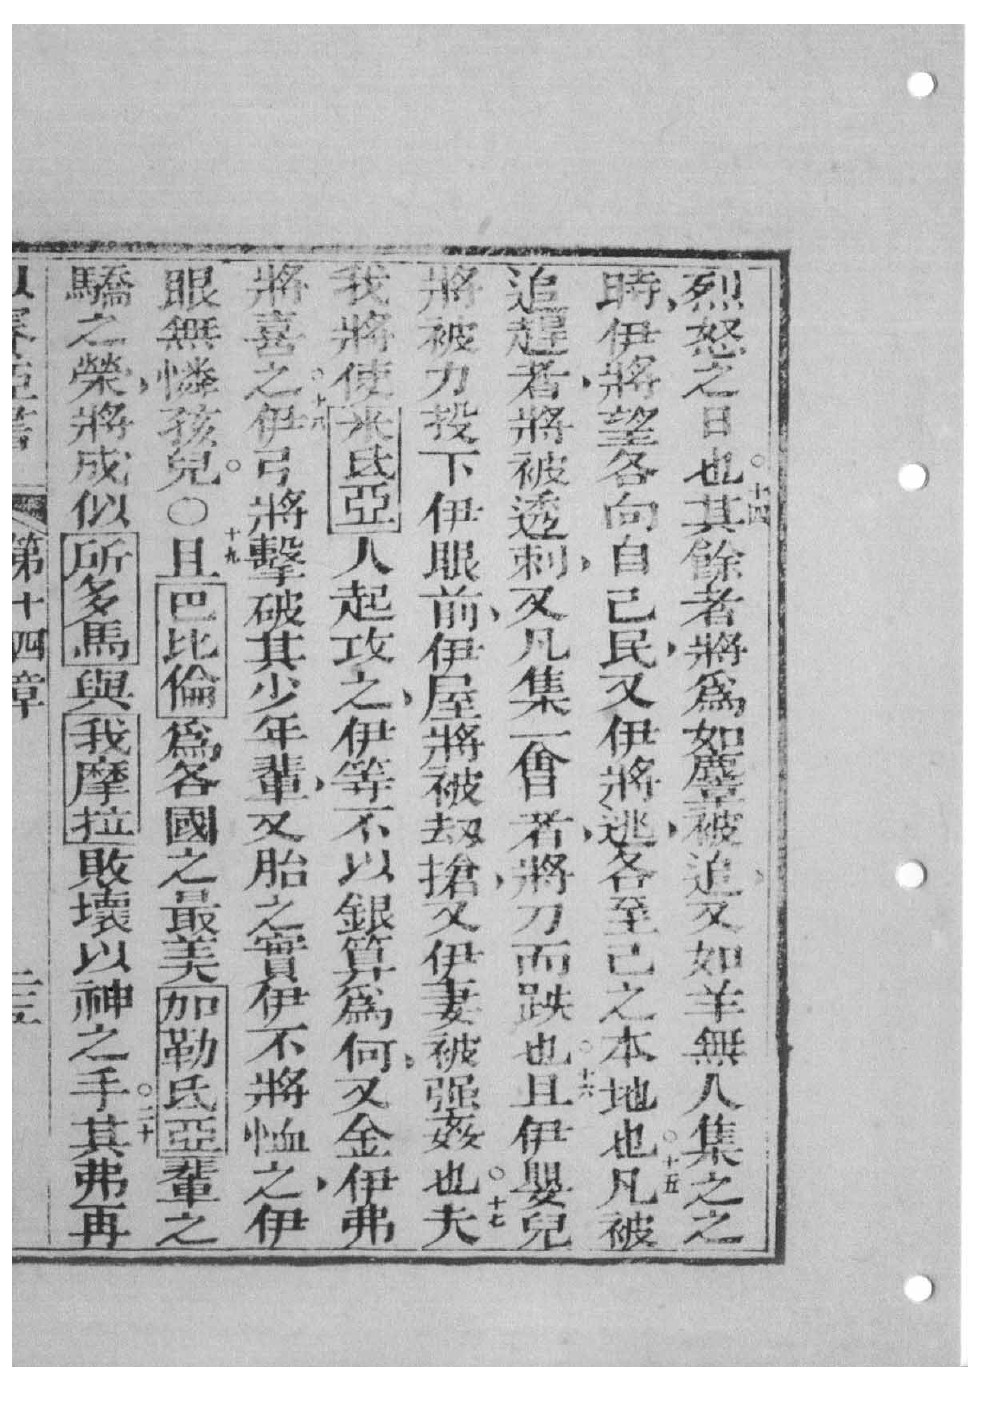 烈怒之日也。十四其餘者將爲如麞被追、又如羊無人集之之
時、伊將望各向自己民、又伊將逃、各至己之本地也。十五凡被
追趕者、將被透刺、又凡集一會者、將刀而跌也。十六且伊嬰兒
將被力投下伊眼前、伊屋將被刼搶、又伊妻被强姦也。十七夫
我將使米氏亞人起攻之、伊等不以銀算爲何、又金伊弗
將喜之。十八伊弓將擊破其少年輩、又胎之實伊不將恤之、伊
眼無憐孩兒。〇十九且巴比倫爲各國之最美加勒氏亞輩之
驕之榮、將成似所多馬與我摩拉敗壞以神之手。二十其弗再
以賽亞書 第十四章